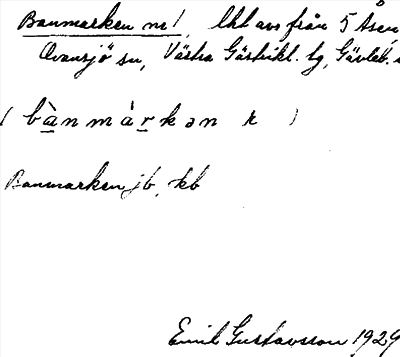 Banmarken nr 1, lht avs från 5 Åsen
Ovansjö sn, Västra Gästrikl. tg, Gävleb.
( bànmàrkən r )
Banmarken jb, kb
Emil Gustavsson 1929